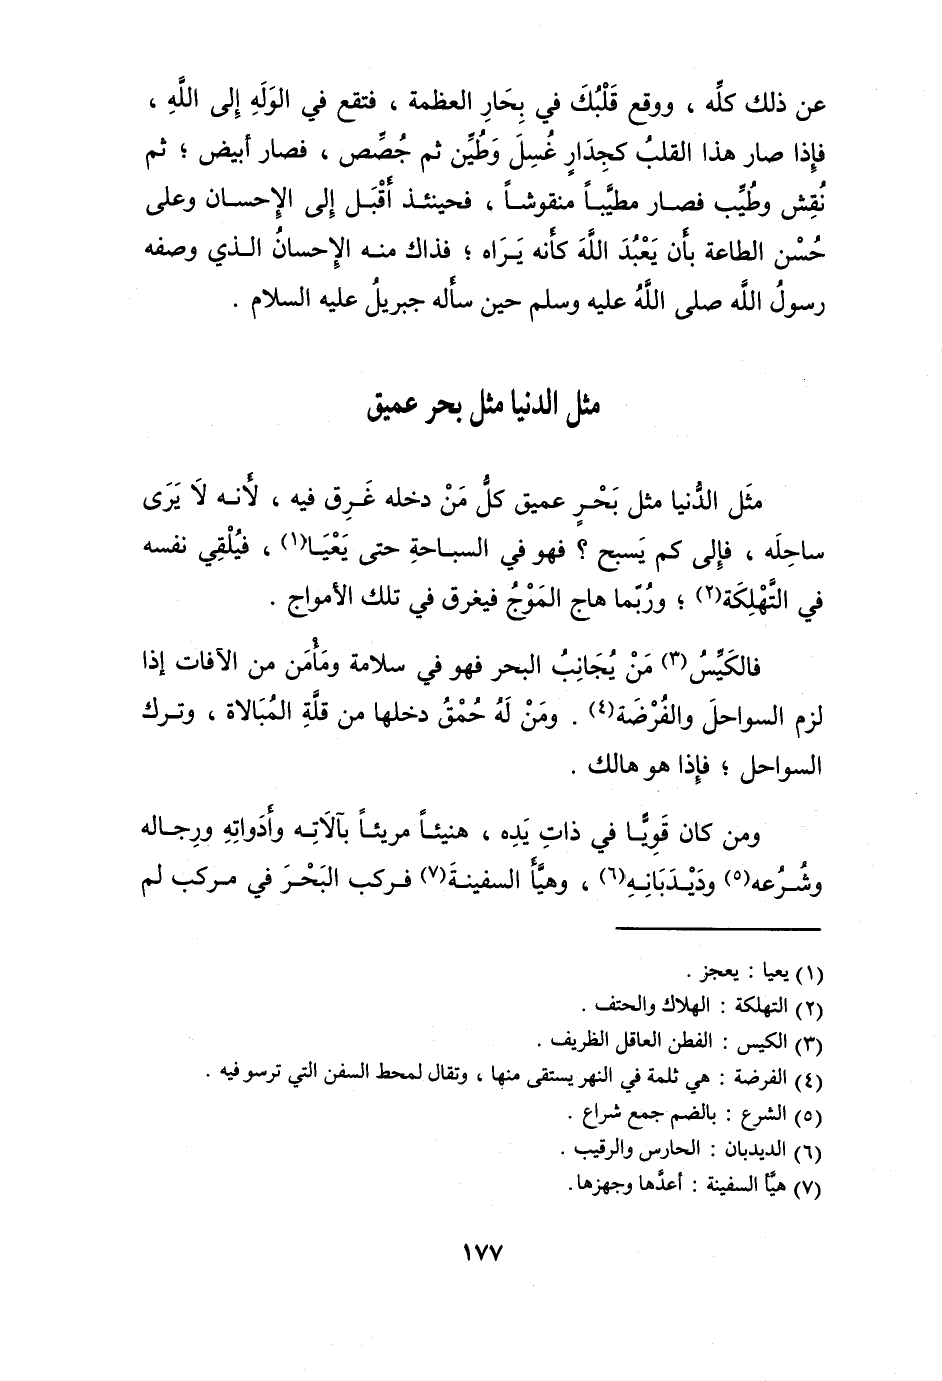 عن ذلك كلِّه ، ووقع قَلْبُكَ في بِحَارِ العظمة ، فتقع في الوَلَهِ إلى اللَّهِ ،
فإذا صار هذا القلبُ كجِدَارٍ غُسِلَ وَطُيِّن ثم جُصِّص ، فصار أبيض ؛ ثم
نُقِش وطُيِّب فصـار مطيَّبـاً منقوشـاً ، فحينئـذ أَقْبَـل إلى الإحسـان وعلى
حُسْن الطاعة بأَن يَعْبُدَ اللَّهَ كأنه يَـرَاه ؛ فذاك منـه الإحسانُ الـذي وصفه
رسولُ اللَّه صلى اللَّهُ عليه وسلم حين سأله جبريلُ عليه السلام .
مثل الدنيا مثل بحر عميق
مثَل الدُّنيا مثل بَحْـرٍ عميق كلُّ مَنْ دخله غَـرِق فيه ، لأَنـه لَا يَرَى
ساحِلَه ، فإلى كم يَسبح ؟ فهو في السباحةِ حتى يَعْيَـا(١) ، فيُلْقِي نفسه
في التَّهْلِكَة(٢) ؛ ورُبّما هاج المَوْجُ فيغرق في تلك الأمواج .
فالكَيِّسُ (٣) مَنْ يُجَانِبُ البحر فهو في سلامة ومَأْمَن من الآفات إذا
لزم السواحلَ والفُرْضَة(٤) . ومَنْ لَهُ حُمْقُ دخلها من قلَّةِ المُبَالاة ، وتـرك
السواحل ؛ فإذا هو هالك .
ومن كان قَوِيًّـا في ذاتِ يَدِه ، هنيئـاً مريئـاً بآلَاتِـه وأَدَواتِهِ ورِجـاله
وشُـرُعه(٥) ودَيْـدَبَانِـهِ(٦) ، وهيَّأَ السفينـةَ(٧) فـركب البَحْـرَ في مـركب لم
(١) يعيا : يعجز .
(٢) التهلكة : الهلاك والحتف .
(٣) الكيس : الفطن العاقل الظريف .
(٤) الفرضة : هي ثلمة في النهر يستقى منها ، وتقال لمحط السفن التي ترسو فيه .
(٥) الشرع : بالضم جمع شراع .
(٦) الديدبان : الحارس والرقيب .
(٧) هيَّأ السفينة : أعدَّها وجهزها.
١٧٧